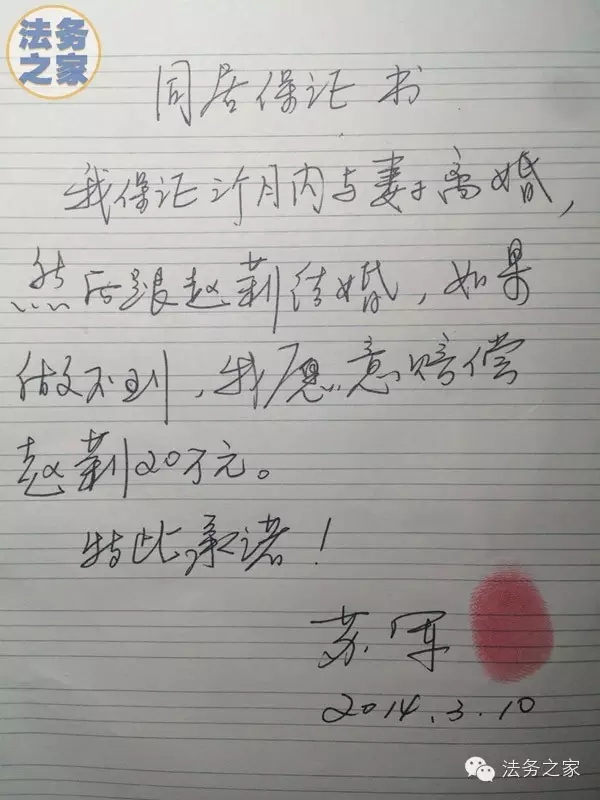 法务
之家
同居保证书
我保证3个月内与妻子离婚，
然后跟赵莉结婚，如果
做不到，我愿意赔偿
赵莉20万元。
特此承诺！
苏军
2014.3.10
法务之家